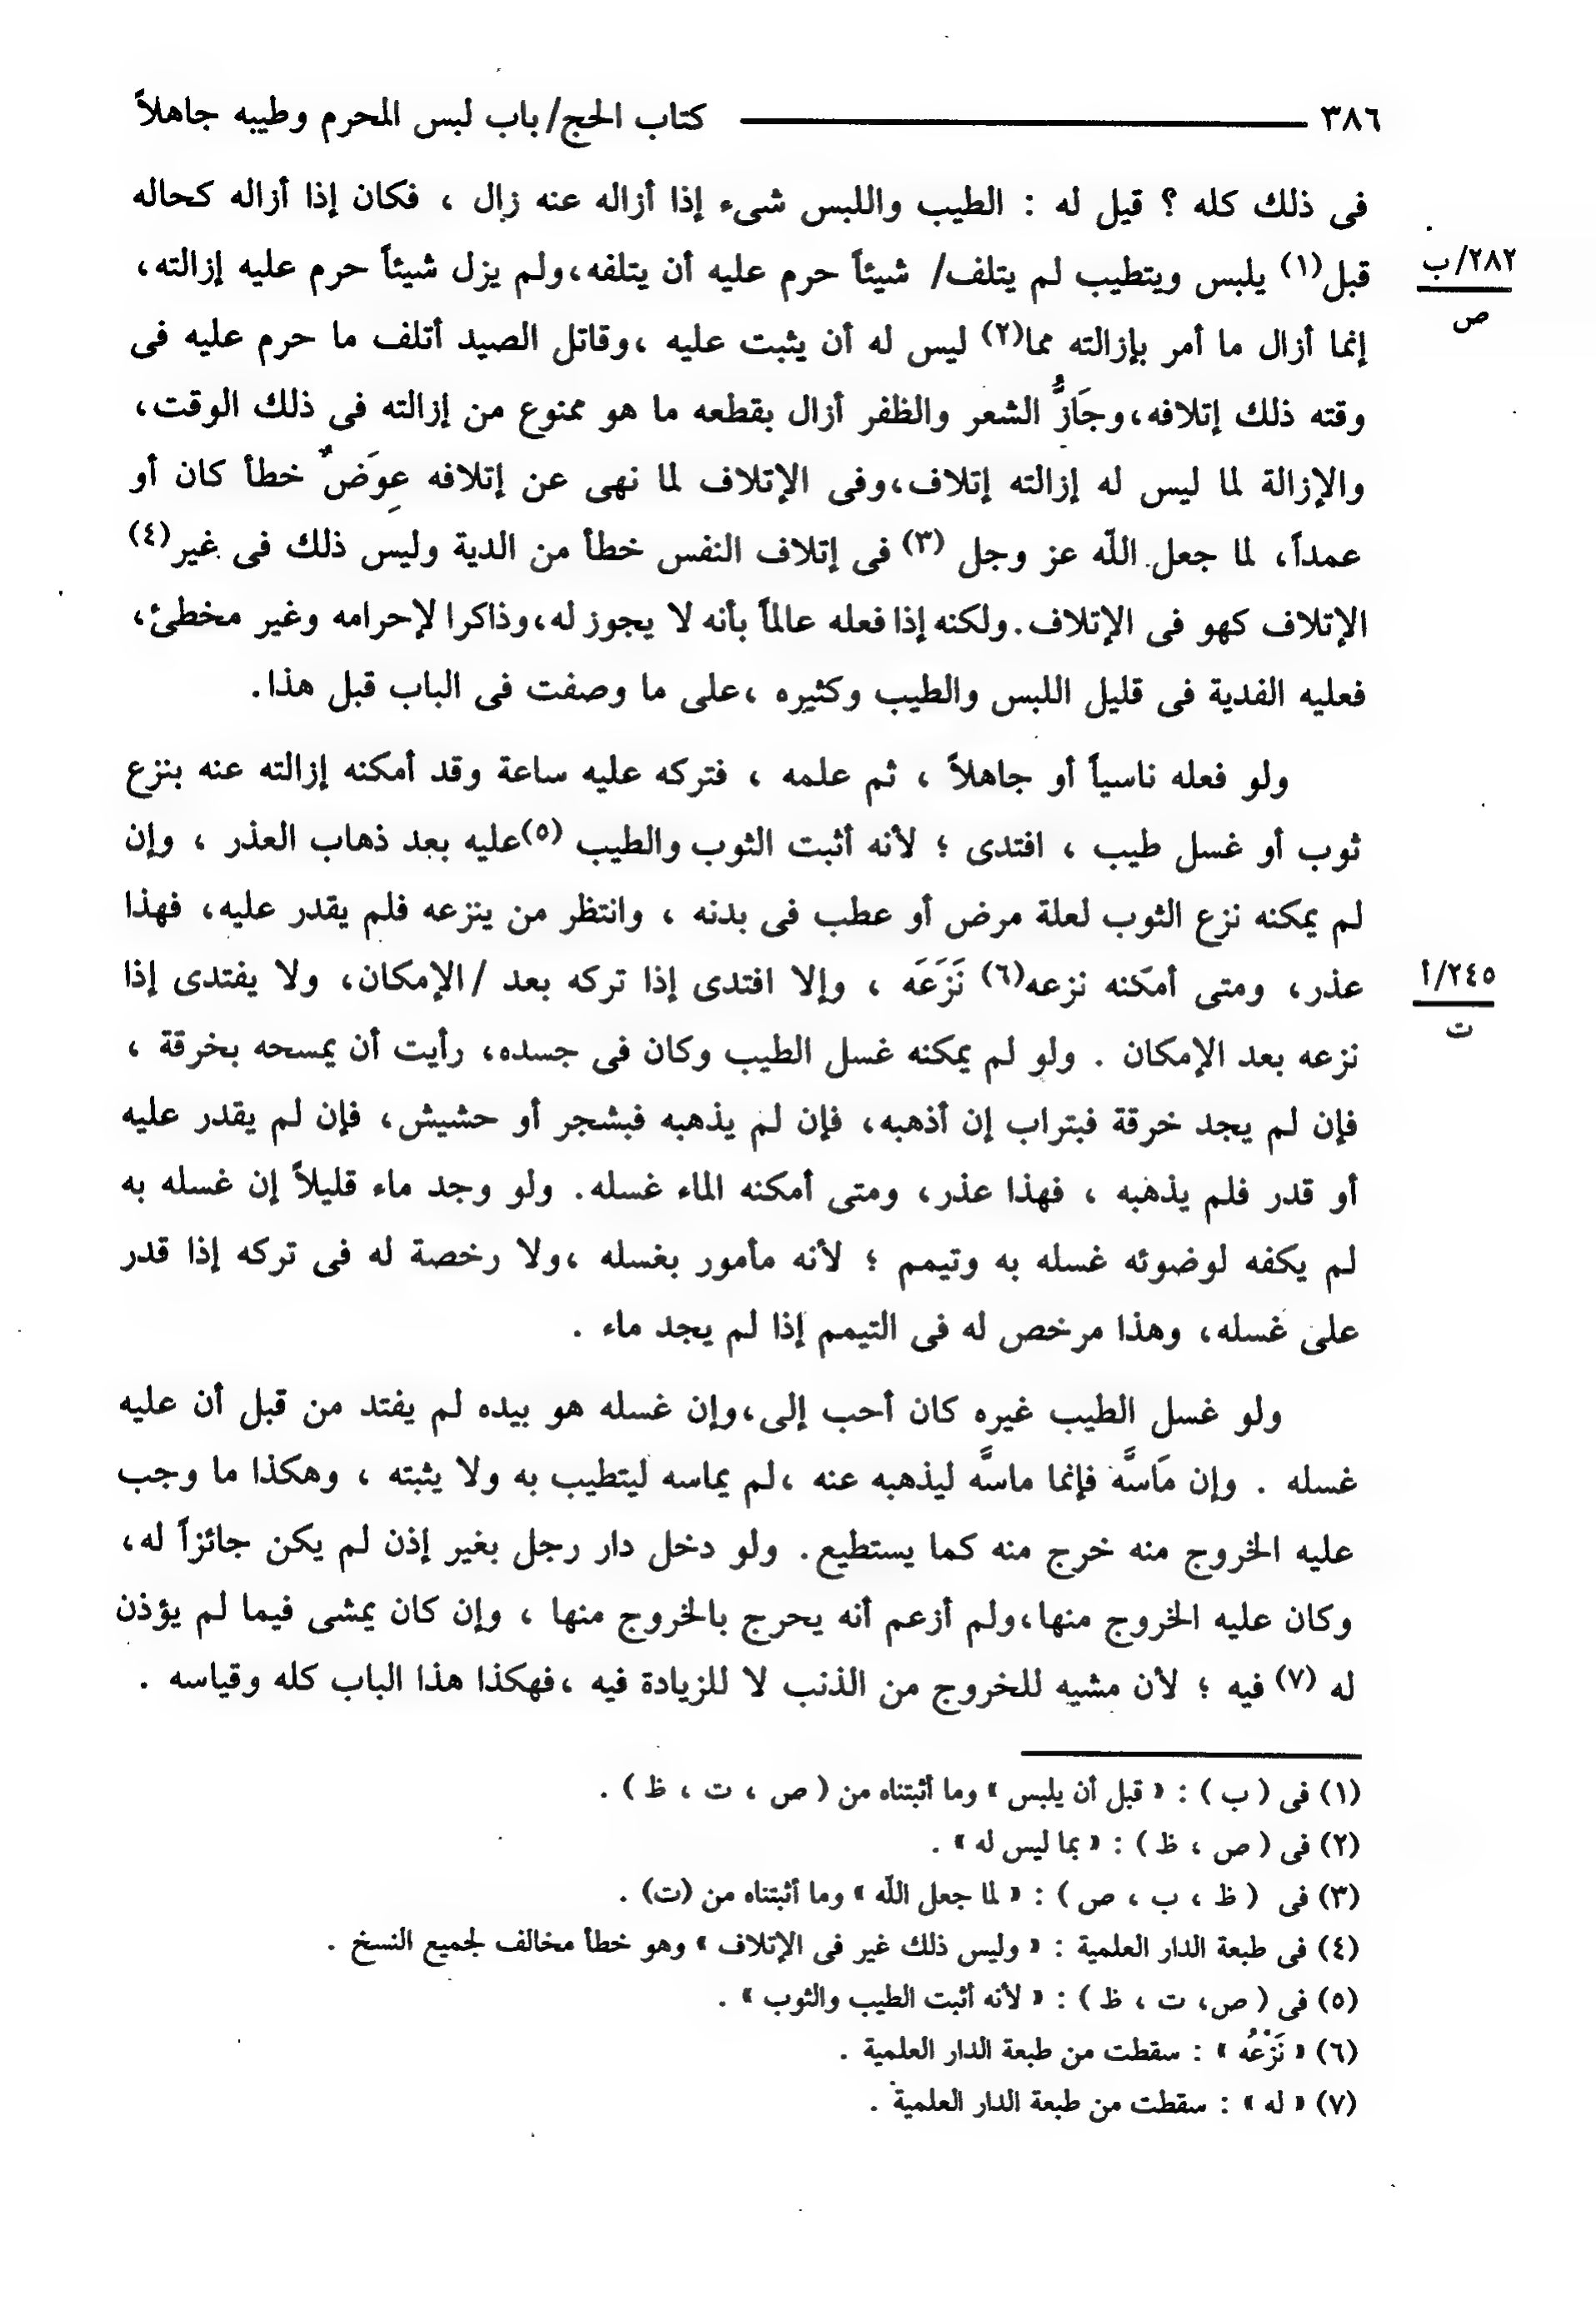 ٣٨٦ كتاب الحج/ باب لبس المحرم وطيبه جاهلاً
فى ذلك كله ؟ قيل له : الطيب واللبس شىء إذا أزاله عنه زال ، فكان إذا أزاله كحاله
قبل(١) يلبس ويتطيب لم يتلف/ شيئاً حرم عليه أن يتلفه،ولم يزل شيئاً حرم عليه إزالته،
٢٨٢/ب
ص
إنما أزال ما أمر بإزالته مما(٢) ليس له أن يثبت عليه ،وقاتل الصيد أتلف ما حرم عليه فى
وقته ذلك إتلافه،وجَازُّ الشعر والظفر أزال بقطعه ما هو ممنوع من إزالته فى ذلك الوقت،
والإزالة لما ليس له إزالته إتلاف،وفى الإتلاف لما نهى عن إتلافه عِوَضٌ خطأ كان أو
عمداً، لما جعل الله عز وجل (٣) فى إتلاف النفس خطأ من الدية وليس ذلك فى غير(٤)
الإتلاف كهو فى الإتلاف.ولكنه إذا فعله عالماً بأنه لا يجوز له،وذاكرا لإحرامه وغير مخطئ،
فعليه الفدية فى قليل اللبس والطيب وكثيره ،على ما وصفت فى الباب قبل هذا.
ولو فعله ناسياً أو جاهلاً ، ثم علمه ، فتركه عليه ساعة وقد أمكنه إزالته عنه بنزع
ثوب أو غسل طيب ، افتدى ؛ لأنه أثبت الثوب والطيب (٥)عليه بعد ذهاب العذر ، وإن
لم يمكنه نزع الثوب لعلة مرض أو عطب فى بدنه ، وانتظر من ينزعه فلم يقدر عليه، فهذا
عذر، ومتى أمكنه نزعه(٦) نَزَعَه ، وإلا افتدى إذا تركه بعد /الإمكان، ولا يفتدى إذا
٢٤٥/أ
ت
نزعه بعد الإمكان . ولو لم يمكنه غسل الطيب وكان فى جسده، رأيت أن يمسحه بخرقة ،
فإن لم يجد خرقة فبتراب إن أذهبه، فإن لم يذهبه فبشجر أو حشيش، فإن لم يقدر عليه
أو قدر فلم يذهبه ، فهذا عذر، ومتى أمكنه الماء غسله. ولو وجد ماء قليلاً إن غسله به
لم يكفه لوضوئه غسله به وتيمم ؛ لأنه مأمور بغسله ،ولا رخصة له فى تركه إذا قدر
على غسله، وهذا مرخص له فى التيمم إذا لم يجد ماء .
ولو غسل الطيب غيره كان أحب إلى،وإن غسله هو بيده لم يفتد من قبل أن عليه
غسله . وإن مَاسَّه فإنما ماسَّه ليذهبه عنه ،لم يماسه ليتطيب به ولا يثبته ، وهكذا ما وجب
عليه الخروج منه خرج منه كما يستطيع. ولو دخل دار رجل بغير إذن لم يكن جائزاً له،
وكان عليه الخروج منها،ولم أزعم أنه يحرج بالخروج منها ، وإن كان يمشى فيما لم يؤذن
له (٧) فيه ؛ لأن مشيه للخروج من الذنب لا للزيادة فيه ،فهكذا هذا الباب كله وقياسه .
(١) فى ( ب ) : « قبل أن يلبس » وما أثبتناه من ( ص ، ت ، ظ ) .
(٢) فى ( ص ، ظ ) : « بما ليس له » .
(٣) فى ( ظ ، ب ، ص ) : « لما جعل الله » وما أثبتناه من (ت) .
(٤) فى طبعة الدار العلمية : « وليس ذلك غير فى الإتلاف » وهو خطأ مخالف لجميع النسخ .
(٥) فى ( ص، ت ، ظ ) : « لأنه أثبت الطيب والثوب » .
(٦) « نَزْعُه » : سقطت من طبعة الدار العلمية .
(٧) « له » : سقطت من طبعة الدار العلمية .